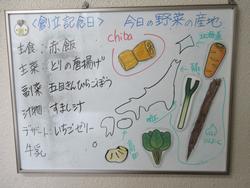 〈創立記念日〉
今日の野菜の産地
主食：赤飯
主菜：とりの唐揚げ
副菜：五目きんぴらごぼう
汁物：すまし汁
デザート：いちごゼリー
牛乳
chiba
北海道